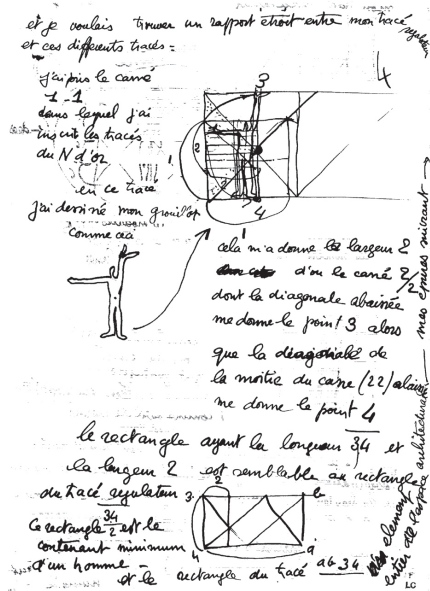 et je voulais trouver un rapport étroit entre mon tracé
régulateur
et ces différents tracés =
j'ai pris le carré
1-1
dans lequel j'ai
inscrit les tracés
du N d'or
en ce tracé
j'ai dessiné mon
comme ceci
3
4
1
2
4
cela m'a donné la largeur 2
d'où le carré 2/2
dont la diagonale abaissée
me donne le point 3 alors
que la diagonale de
la moitié du carré (22)
me donne le point 4
le rectangle ayant la longueur 34 et
la largeur 2 est semblable au rectangle
du tracé régulateur
3
2
b
4
a
Ce rectangle 34/2 est le
contenant minimum
d'un homme -
et le rectangle du tracé ab 34
element
entier de l'espace architectural
mes épures
F
LC